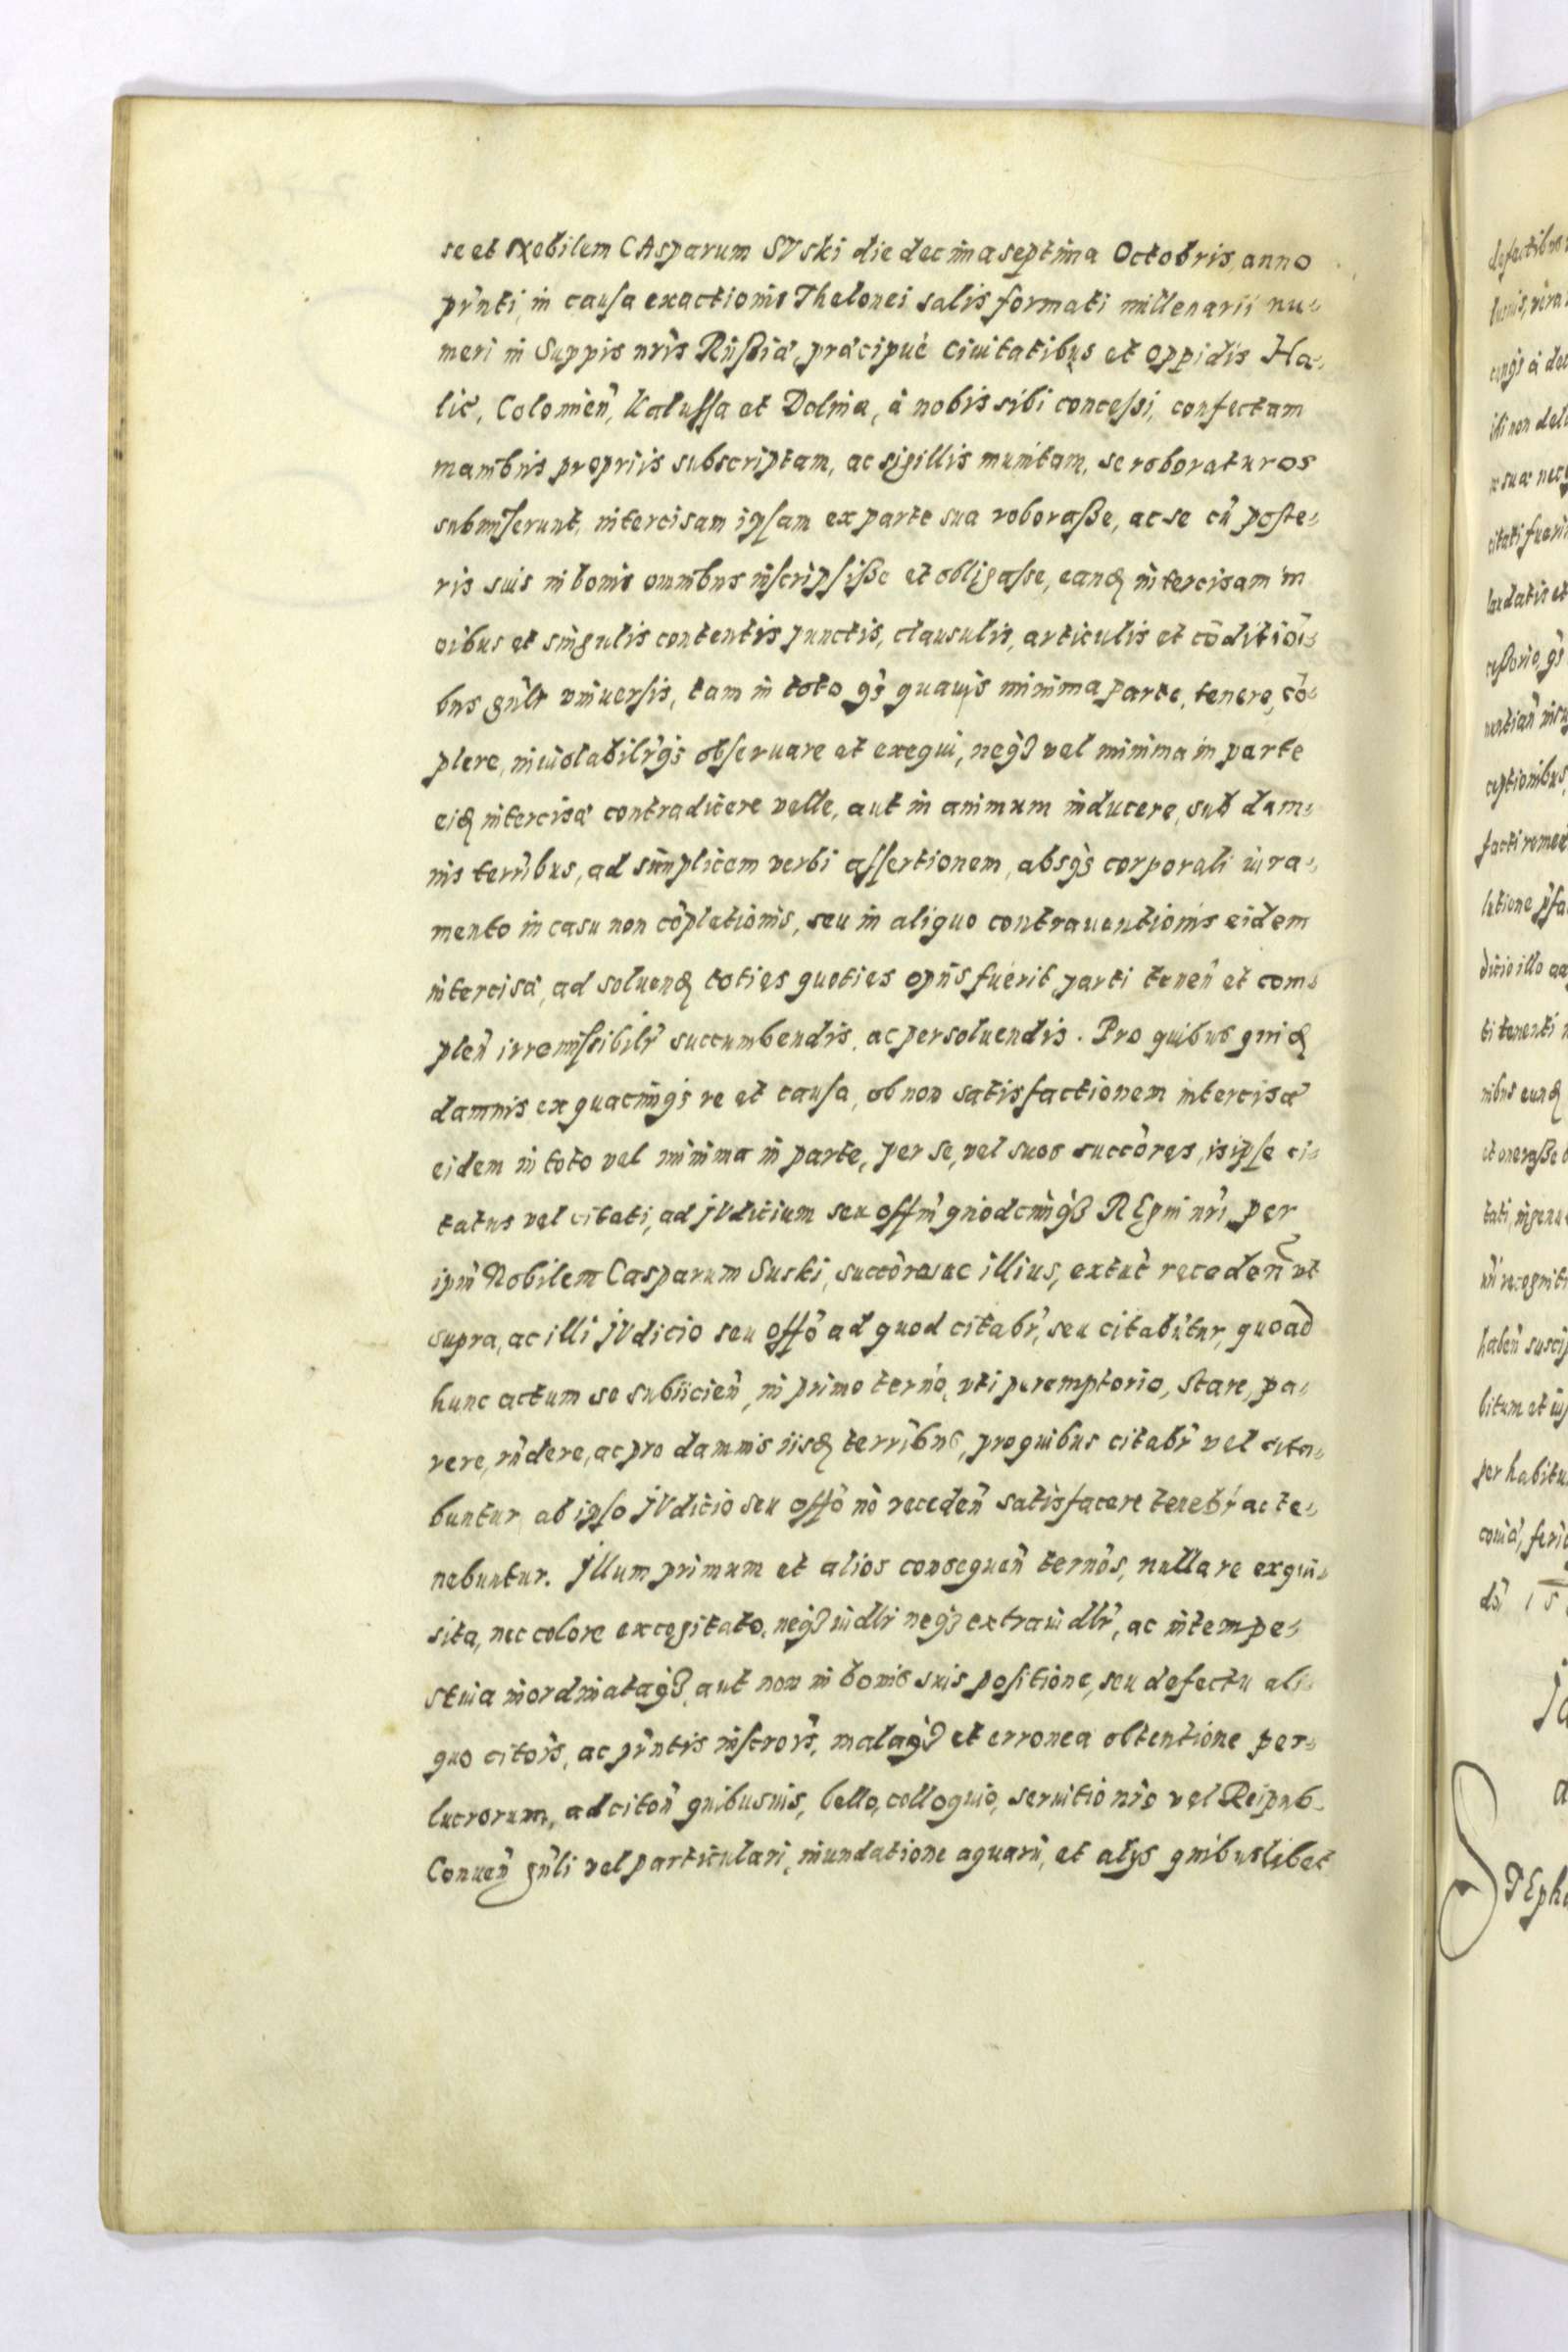 se et Nobilem CAsparum SVski die decima septima Octobris, anno
pr̃nti, in causa exactionis Thelonei salis formati millenarii nu⸗
meri in Suppis nr̃is Rußiæ, præcipuè Ciuitatibus et oppidis Ha⸗
lic̃, Colomien̄, Kalussa et Dolina, à nobis sibi concessi, confectam
manibus propriis subscriptam, ac sigillis munitam, se roboraturos
submiserunt, intercisam ipsam ex parte sua roboraße, ac se cū poste⸗
ris suis in bonis omnibus inscripsiße et obligasse, eandꝫ intercisam in
oībus et singulis contentis punctis, clausulis, articulis et cōditiōi⸗
bus gñlr vniuersis, tam in toto qꝫ quauis minima parte, tenere, cō⸗
plere, inuiolabilr̃qꝫ obseruare et exequi, neqꝫ vel minima in parte
eidꝫ intercisæ contradicere velle, aut in animum inducere, sub dam⸗
nis terr̃ibus, ad simplicem verbi assertionem, absqꝫ corporali iura⸗
mento in casu non cōpletionis, seu in aliquo contrauentionis eidem
intercisæ, ad soluendꝫ toties quoties opūs fuerit, parti tenen̄ et com⸗
plen̄ irremissibilr̃ succumbendis, ac persoluendis. Pro quibus quidꝫ
damnis ex quacunqꝫ re et causa, ob non satisfactionem intercisæ
eidem in toto vel minima in parte, per se, vel suos succōres, is ipse ci⸗
tatus vel citati, ad jVdicium seu offm̄ quodcunqꝫ REgni nr̃i, per
ipm̄ Nobilem Casparum Suski, succōres ac illius, extūc receden̄ vt
supra, ac illi jVdicio seu offō ad quod citabr̃, seu citabūtur, quoad
hunc actum se subiicien̄, in primo termō, vti peremptorio, stare, pa⸗
rere, rñdere, ac pro damnis iisdꝫ terr̃ibus, pro quibus citabr̃ vel cita⸗
buntur, ab ipso jVdicio seu offō nō receden̄ satisfacere tenebr̃ ac te⸗
nebuntur. Jllum primum et alios consequen̄ termōs, nulla re exqui⸗
sita, nec colore excogitato, neqꝫ iudlr̃ neqꝫ extraiudlr̃, ac intempe⸗
stiua inordinataqꝫ, aut non in bonis suis positione, seu defectu ali⸗
quo citōis, ac pr̃ntis inscrōis, malaqꝫ et erronea obtentione per⸗
lucrorum, ad citōn̄ quibusuis, bello, colloquio, seruitio nr̃o vel Reipub.
Conuen̄ gñli vel particulari, inundatione aquarū, et alijs quibuslibet